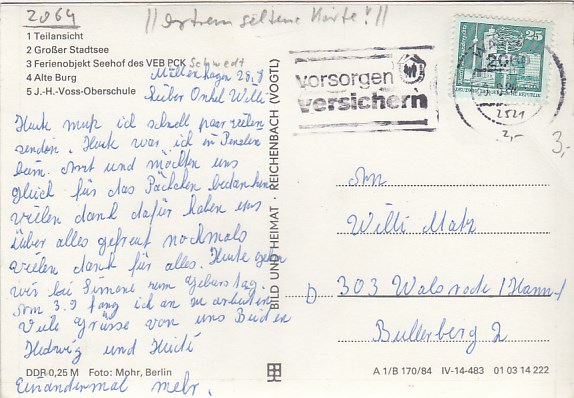 2064
// extrem seltene Karte! //
1 Teilansicht
2 Großer Stadtsee
3 Ferienobjekt Seehof des VEB PCK Schwedt
4 Alte Burg
5 J.-H.-Voss-Oberschule
28.8
Lieber Onkel Willi
Heute muß ich schnell paar zeilen
senden. Heute war ich in Penzlin
beim Amt und möchten uns
gleich für das Päckchen bedanken
vielen dank dafür haben uns
über alles gefreut nochmals
vielen dank für alles. Heute gehen
wir bei Simone zum Geburtstag.
Am 3.9 fang ich an zu arbeiten
Viele Grüsse von uns Beiden
Hedwig und Heidi
Einandermal mehr.
DDR 0,25 M Foto: Mohr, Berlin
BILD UND HEIMAT · REICHENBACH (VOGTL)
vorsorgen
versichern
25
2060
2521
2,-
3,-
An
Willi Matz
D 303 Walsrode / Hann
Bullerberg 2
A 1/B 170/84 IV-14-483 01 03 14 222